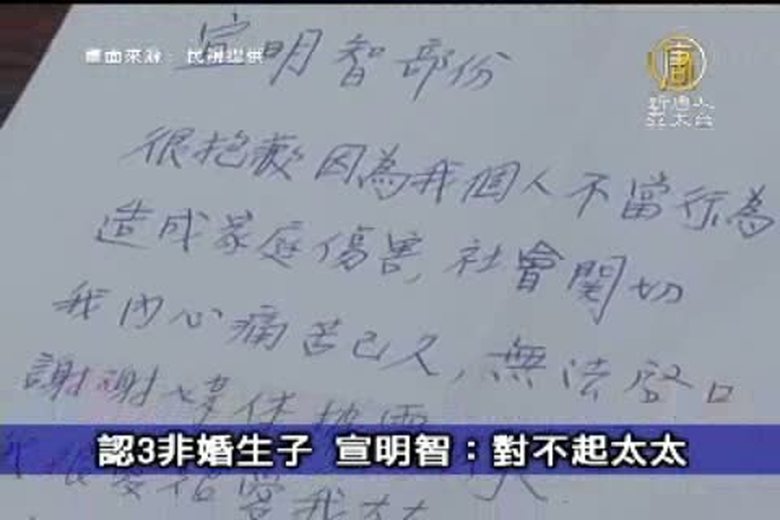 畫面來源：民視提供
新唐人
亞太台
宣明智部份
很抱歉因為我個人不當行為
造成家庭傷害,社會関切
我內心痛苦已久,無法啓口
謝謝媒体披露
我太太
認3非婚生子 宣明智：對不起太太